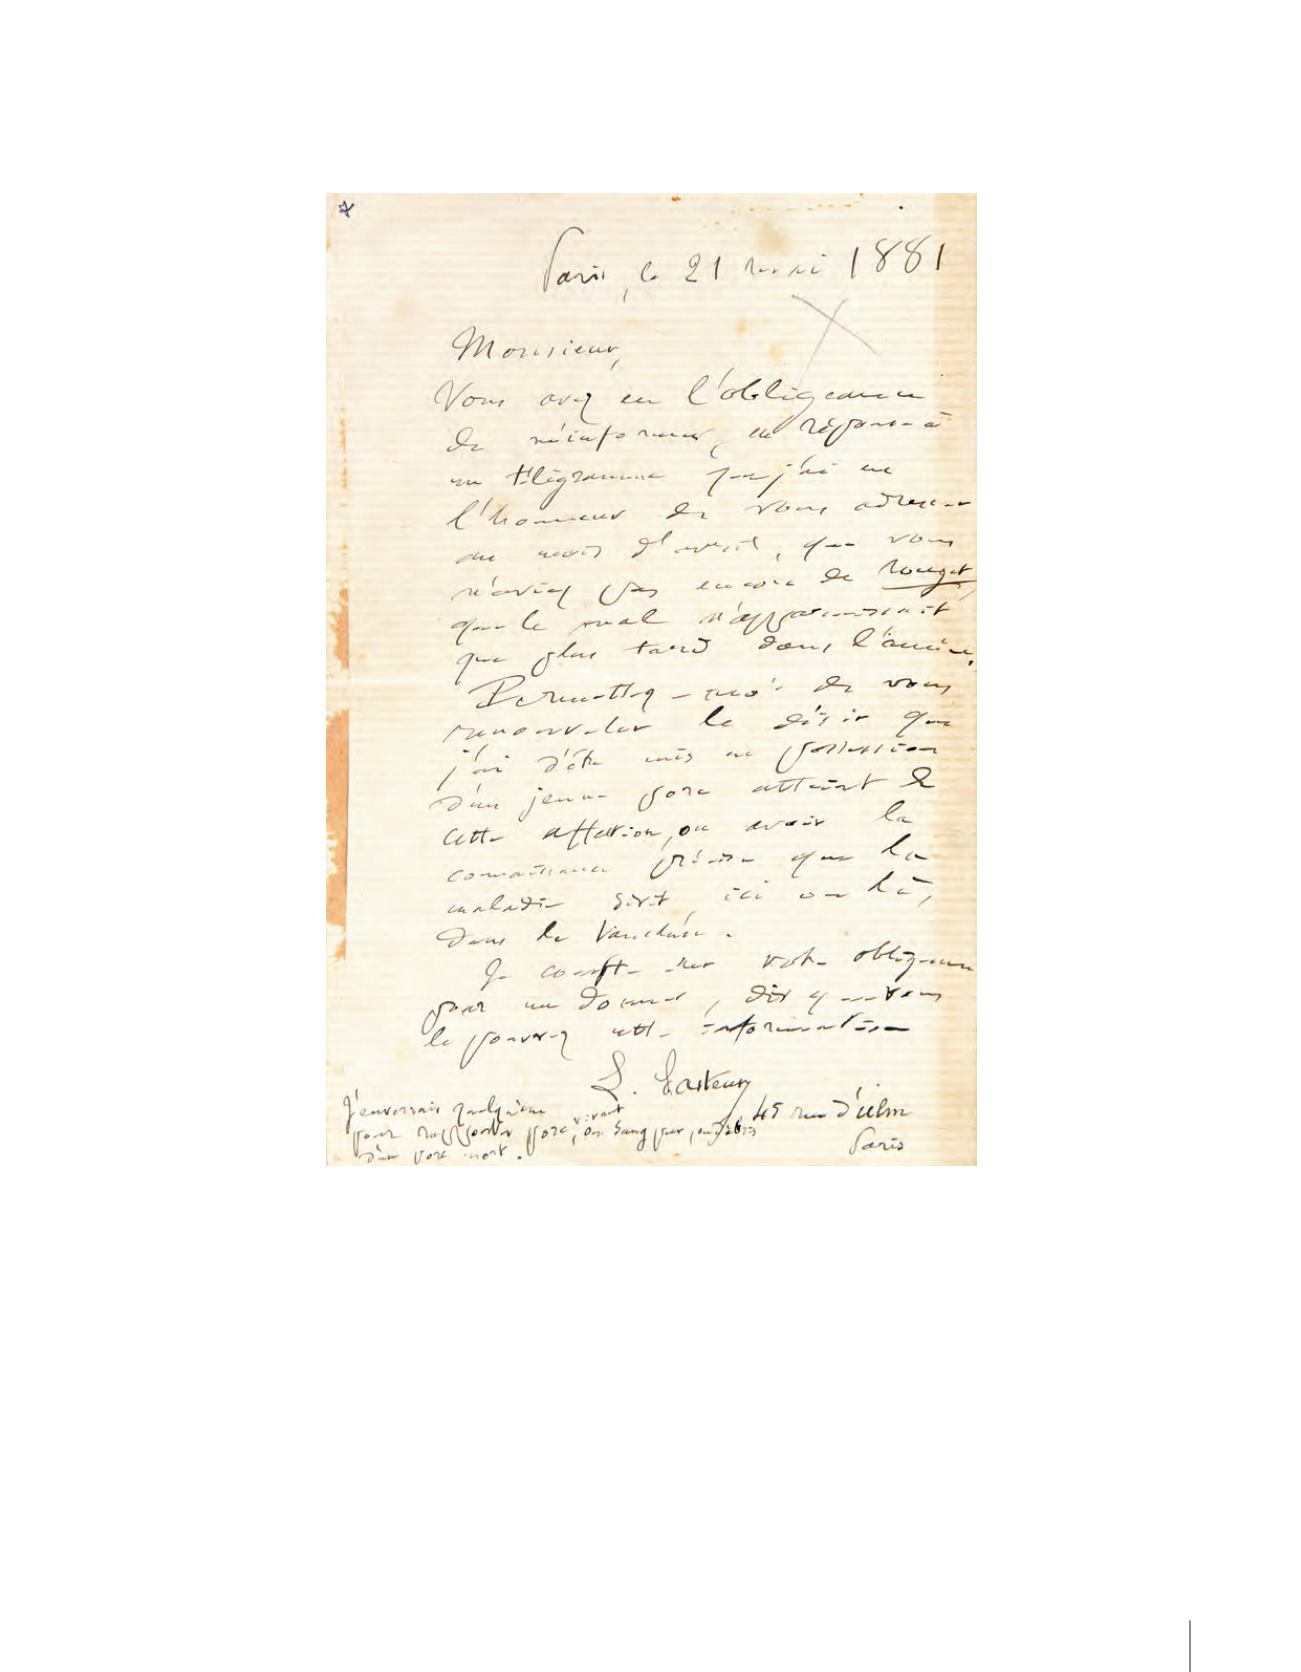 Paris, le 21 mai 1881
Monsieur,
Vous avez eu l'obligeance
de m'informer, en réponse à
un télégramme que j'ai eu
l'honneur de vous adresser
au mois d'avril, que vous
n'aviez pas encore de rouget,
que le mal n'apparaissait
que plus tard dans l'année.
Permettez-moi de vous
renouveler le désir que
j'ai d'être mis en possession
d'un jeune porc atteint de
cette affection, ou avoir la
connaissance précise que la
maladie sévit, ici ou là,
dans le Vaucluse.
Je compte sur votre obligeance
pour me donner, dès que vous
le pouvez cette information
L. Pasteur
45 rue d'Ulm
Paris
J'enverrais quelqu'un
pour rapporter porc vivant, ou sang pur, ou
d'un porc mort.